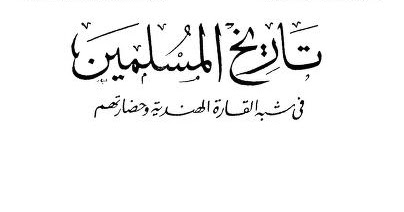 تاريخ المسلمين
في شبه القارة الهندية وحضارتهم